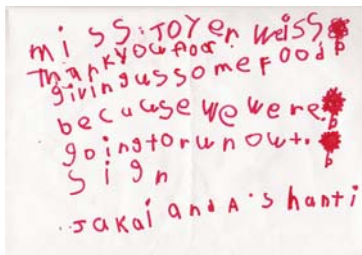 miss: JOYer weiss
thankyou foor
givingussomeFood
because we were
goingtorunowt.
sign
Jakai and A'shanti